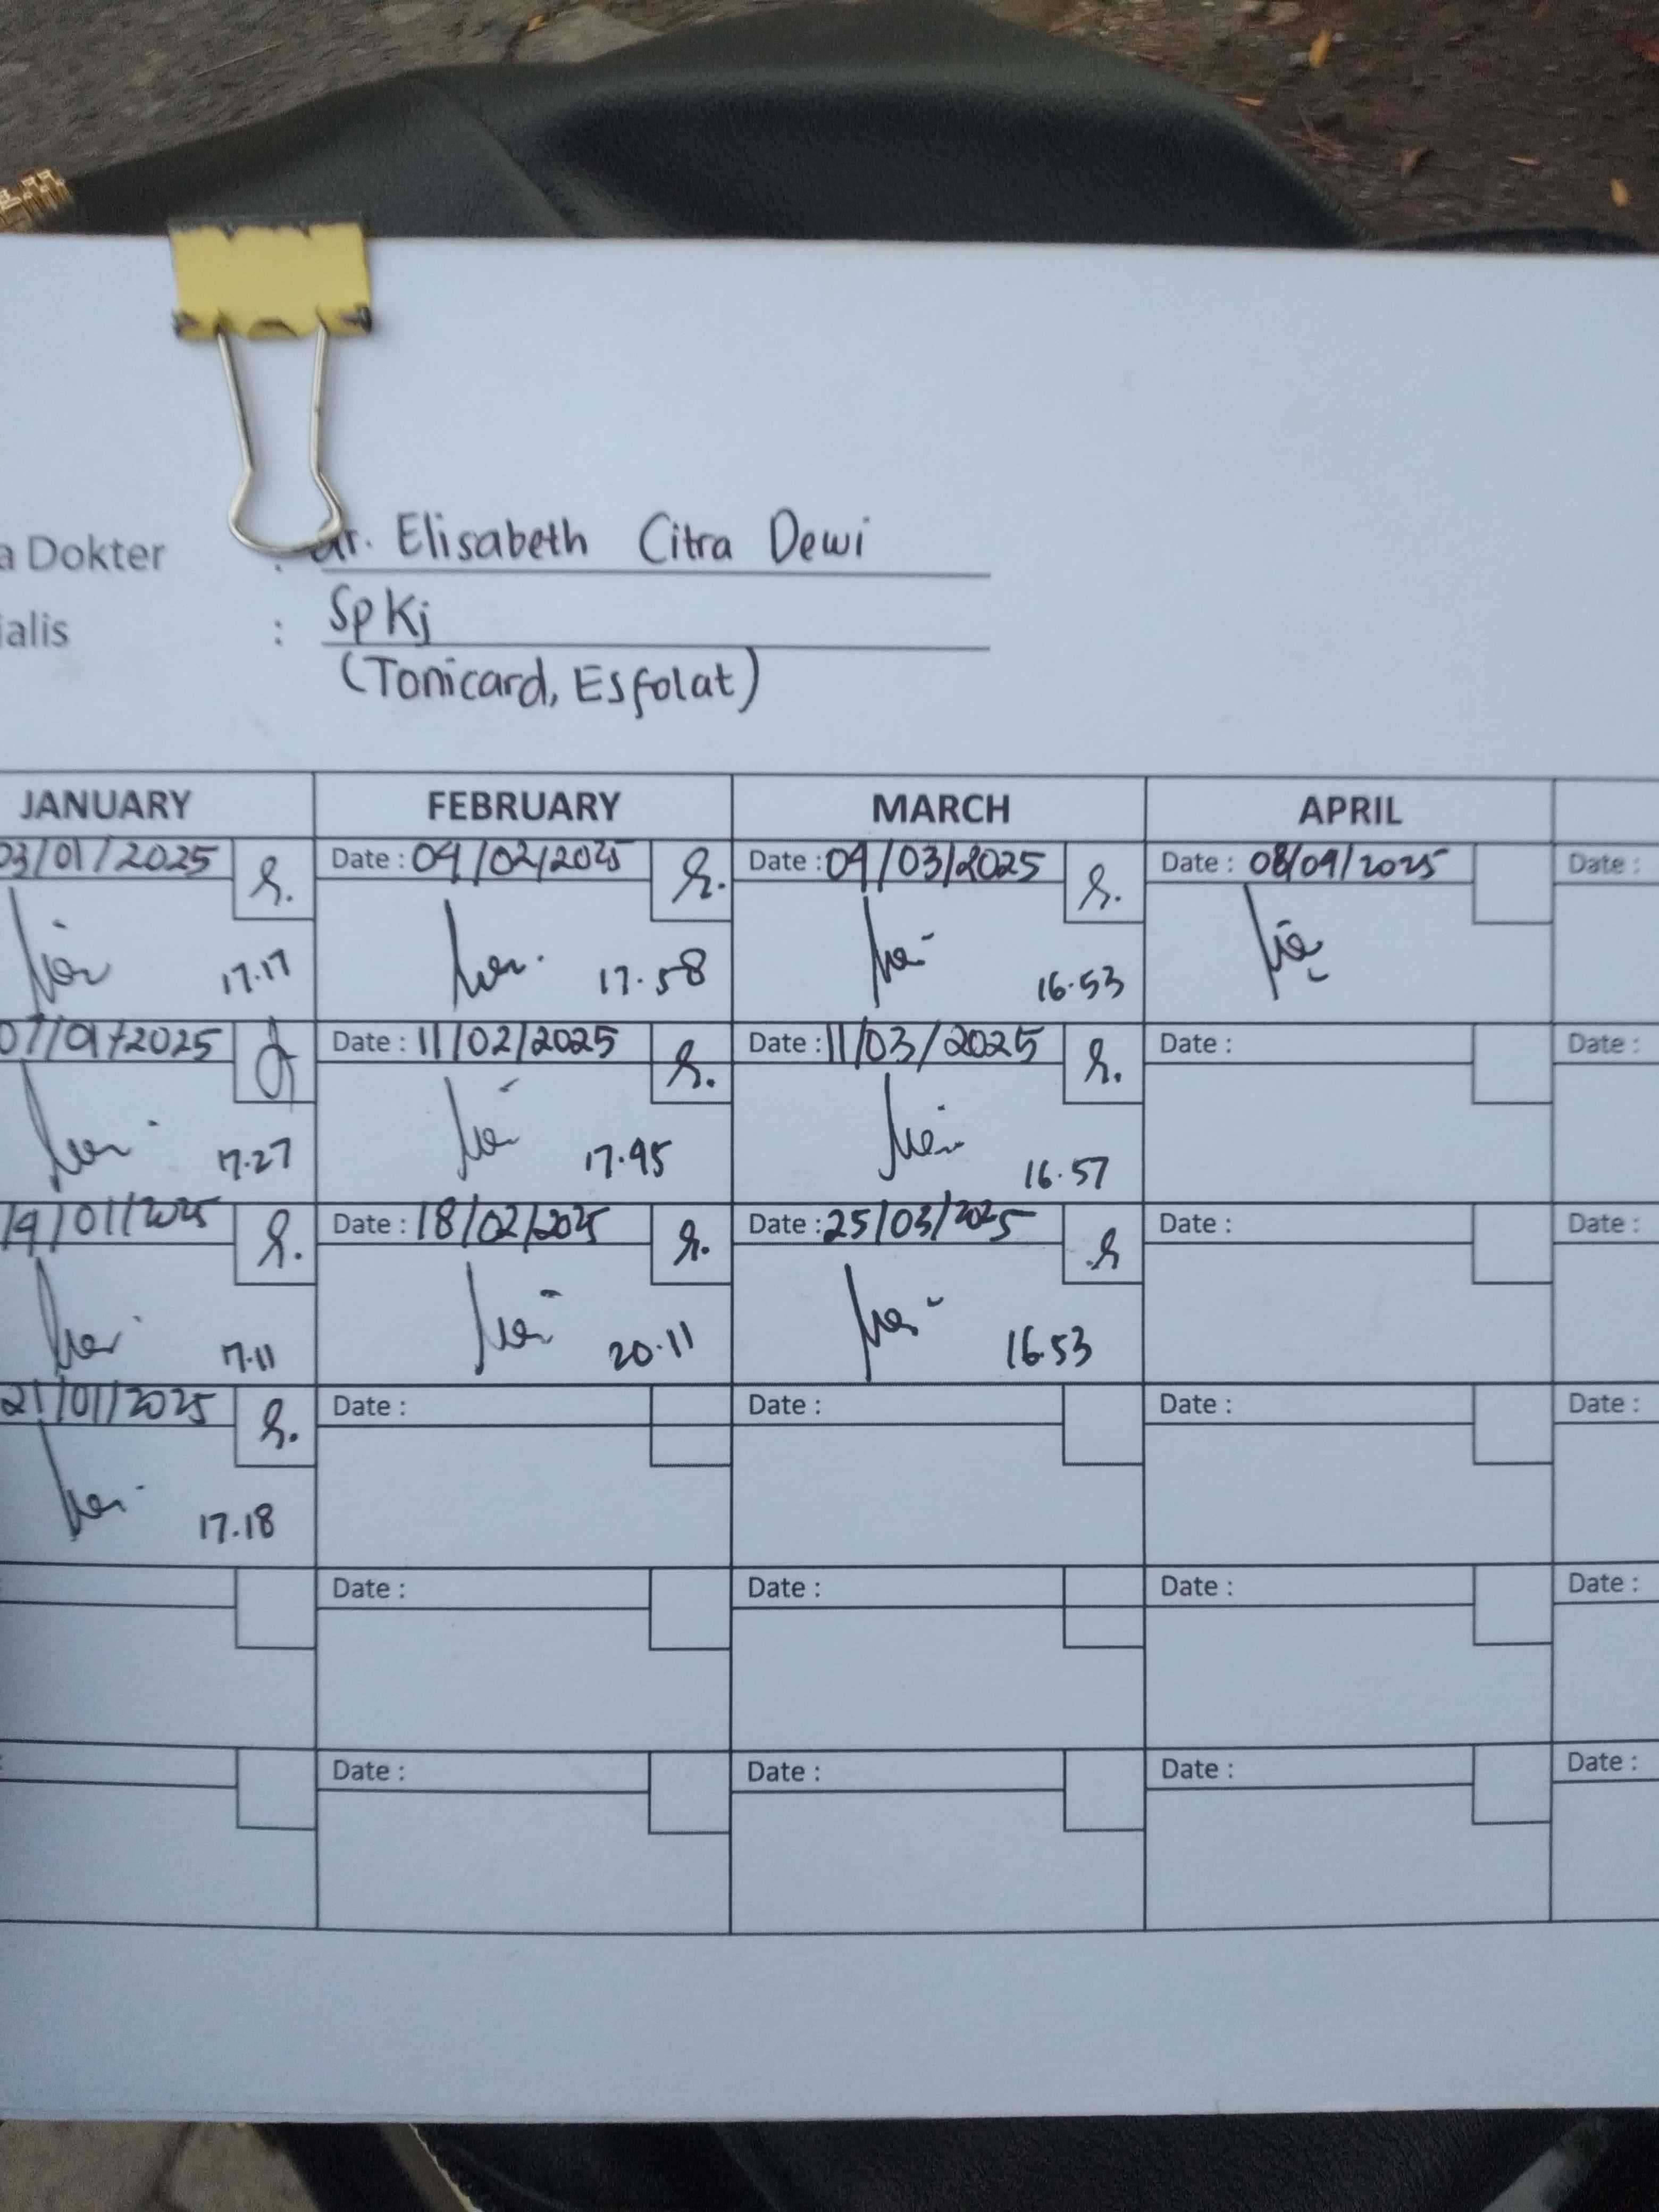 a Dokter : dr. Elisabeth Citra Dewi
ialis : SpKj
(Tonicard, Esfolat)
JANUARY FEBRUARY MARCH APRIL
03/01/2025 Date : 04/02/2025 Date : 04/03/2025 Date : 08/04/2025 Date :
17.17 17.58 16.53
07/01/2025 Date : 11/02/2025 Date : 11/03/2025 Date : Date :
17.27 17.45 16.57
14/01/2025 Date : 18/02/2025 Date : 25/03/2025 Date : Date :
17.11 20.11 16.53
21/01/2025 Date : Date : Date : Date :
17.18
Date : Date : Date : Date :
Date : Date : Date : Date :